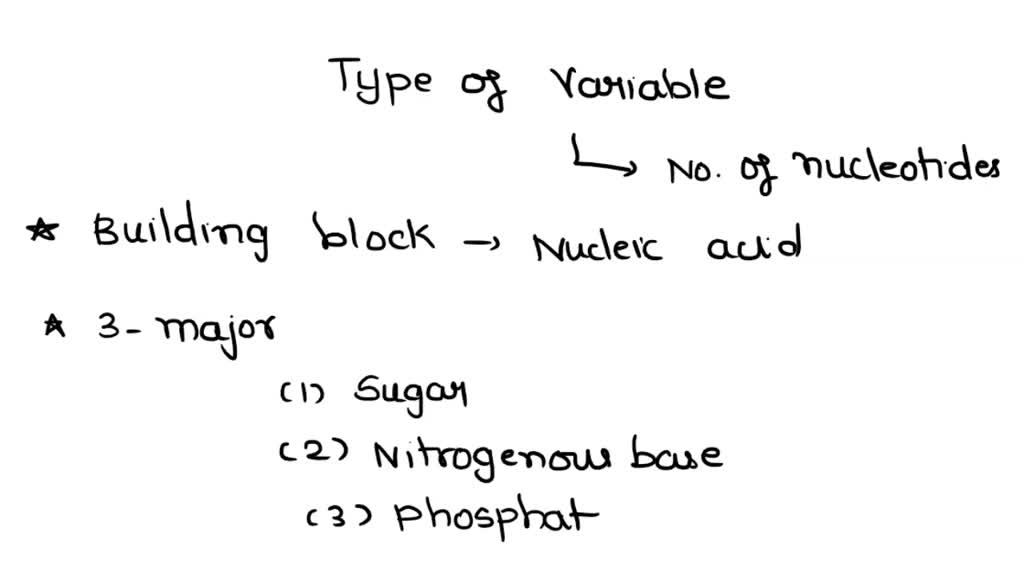 Type of Variable
↳ No. of nucleotides
* Building block → Nucleic acid
* 3- major
(1) Sugar
(2) Nitrogenous base
(3) Phosphat